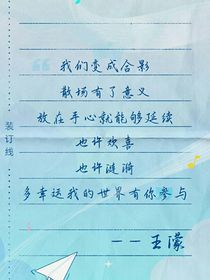 我们变成合影
散场有了意义
放在手心就能够延续
也许欢喜
也许涟漪
多幸运我的世界有你参与
——王濛
装订线